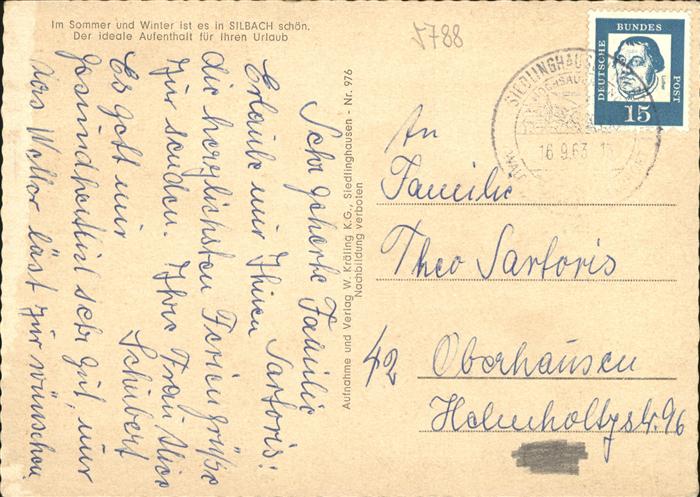 Im Sommer und Winter ist es in SILBACH schön.
Der ideale Aufenthalt für Ihren Urlaub
5788
Sehr geherte Familie
Sartoris!
Erlaube mir Ihnen
die herzlichsten Feriengrüße
zur senden. Ihre Frau Alice
Schubert
Es geht mir
gesundheitlit sehr gut, nur
das Wetter läst zur wünschen
Aufnahme und Verlag W. Kräling K.G., Siedlinghausen - Nr. 976
Nachbildung verboten
DEUTSCHE BUNDES POST
15
SIEDLINGHAUSEN
16.9.63
An
Familie
Theo Sartoris
42 Oberhausen
Helmholtzstr. 96